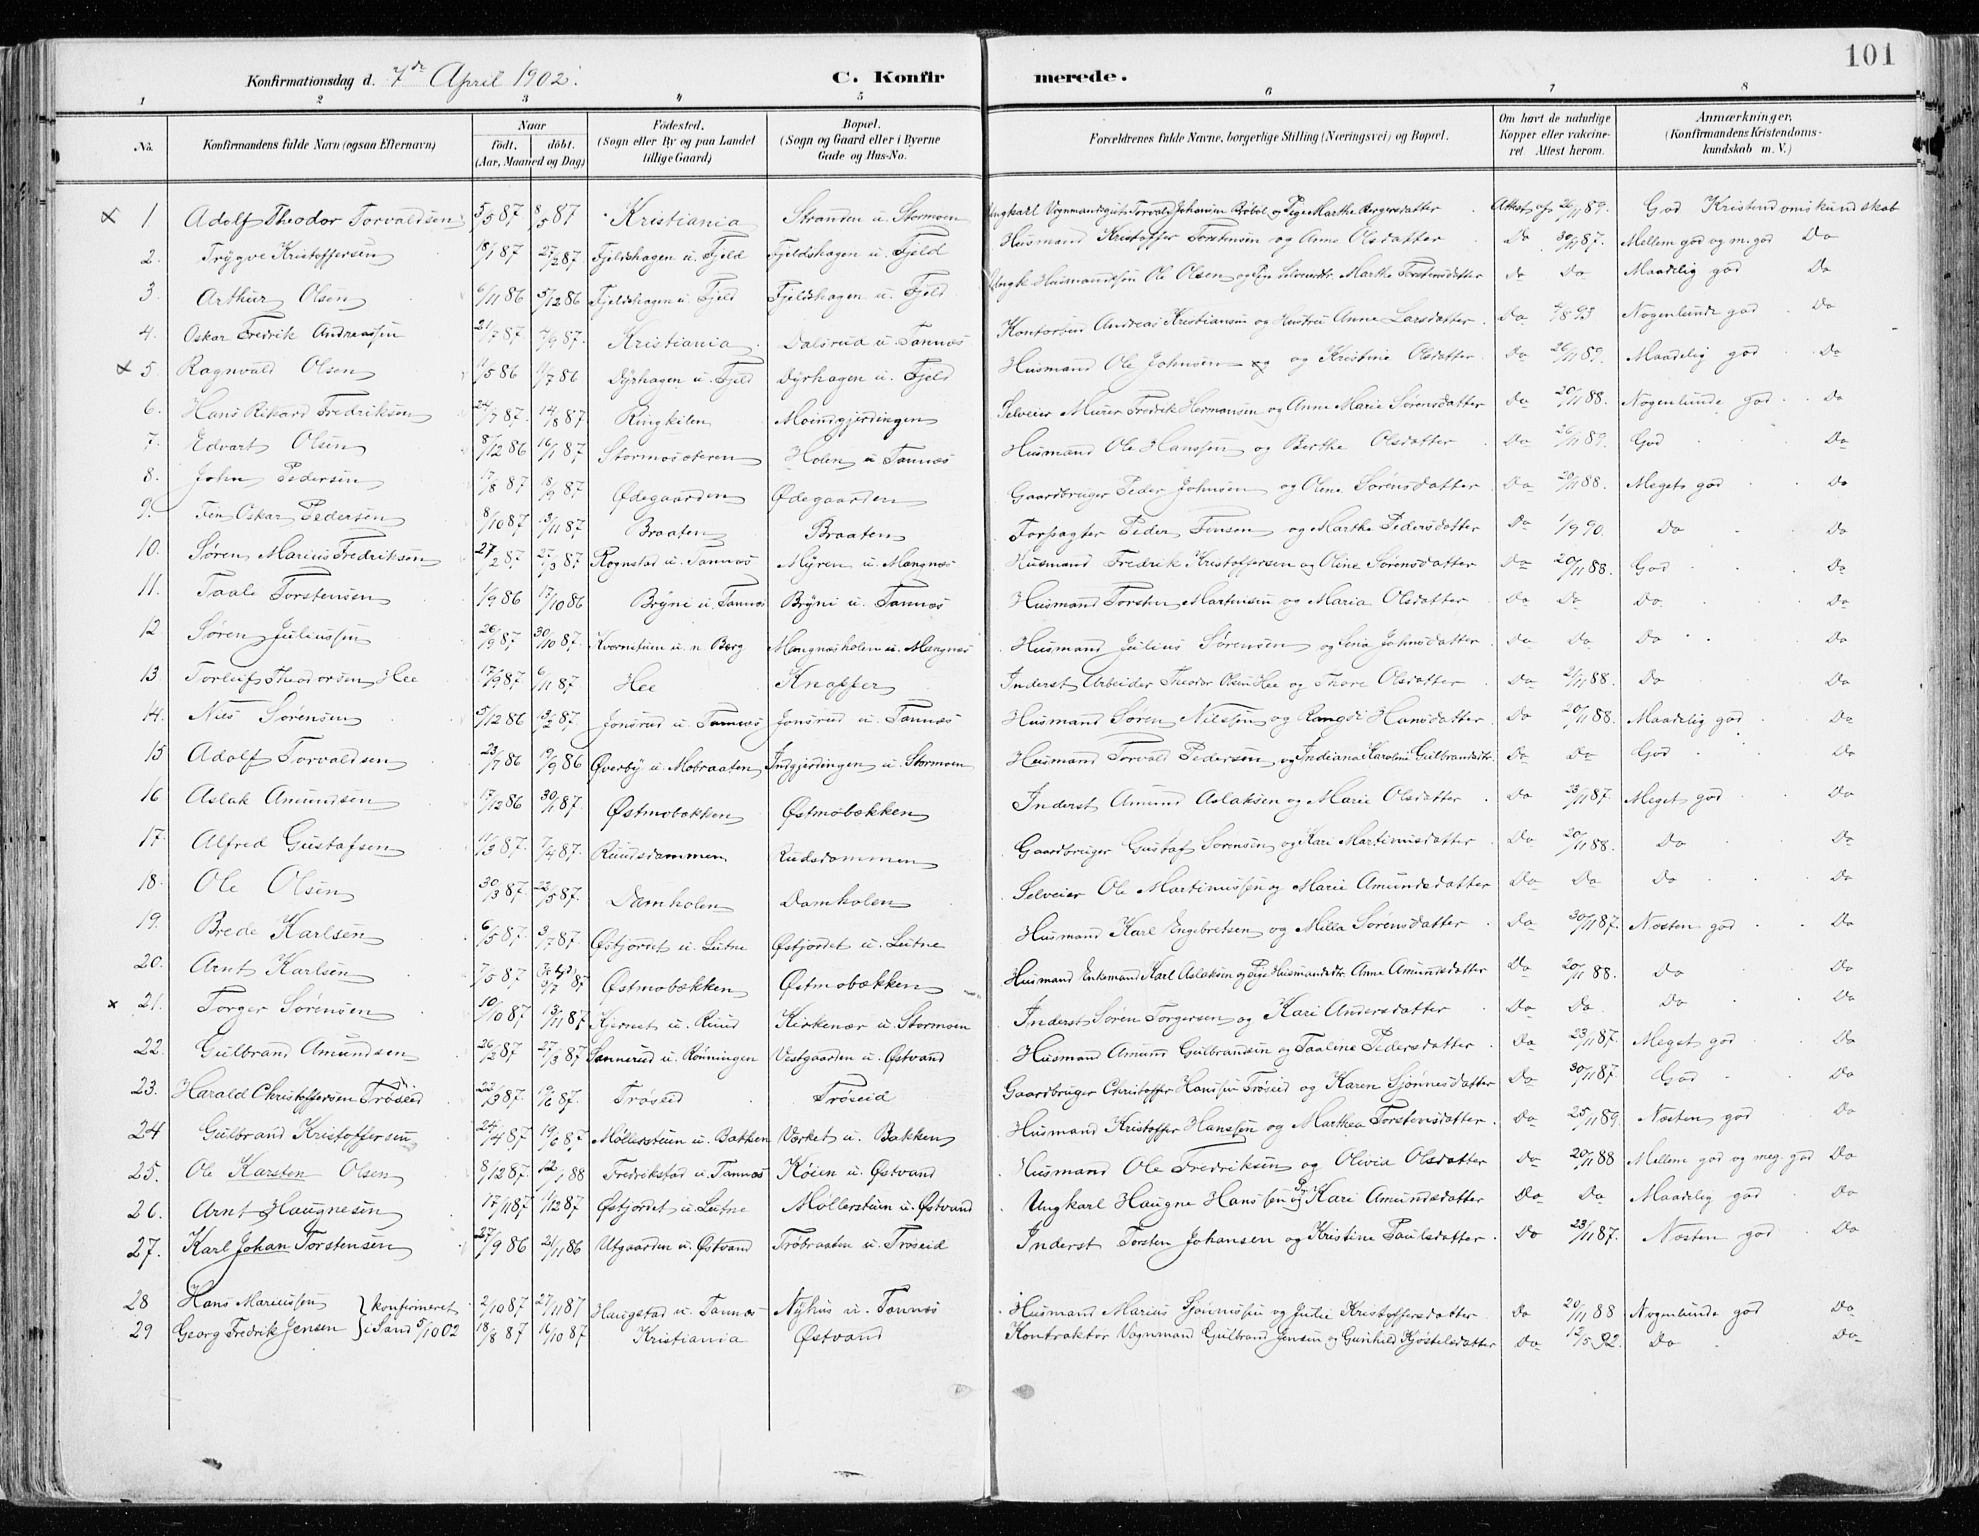 101
Konfirmationsdag d. 7de April 1902. C. Konfirmerede.
1 2 3 4 5 6 7 8
No. Konfirmandens fulde Navn (ogsaa Efternavn) Naar født. døbt. (Aar, Maaned og Dag) Fødested. (Sogn eller By og paa Landet tillige Gaard) Bopæl. (Sogn og Gaard eller i Byerne Gade og Hus-No. Forældrenes fulde Navne, borgerlige Stilling (Næringsvei) og Bopæl. Om havt de naturlige Kopper eller vakcineret. Attest herom. Anmærkninger. (Konfirmandens Kristendomskundskab m. V.)
1 Adolf Theodor Torvaldsen 5/5 87 8/5 87 Kristiania Stranden u. Stormoen Ungkarl Torvald Johansen og Pige Marthe Børgersdatter Attest af 26/11 89. God Kristendomskundskab
2. Trygve Kristoffersen 18/1 87 27/2 87 Fjeldshagen u. Fjeld Fjeldshagen u. Fjeld Husmand Kristoffer Torstensen og Anne Olsdatter Do 30/11 87. Mellem god og m. god Do
3 Arthur Olsen 6/11 86 5/12 86 Fjeldshagen u. Fjeld Fjeldshagen u. Fjeld Ungk. Husmandssøn Ole Olsen og Marthe Torstensdatter Do Do Maadelig god Do
4. Oskar Fredrik Andreassen 21/7 87. 7/9 87. Kristiania Dalsrud u. Tannæs Kontorbud Andreas Kristiansen og Hustru Anne Larsdatter Do 4/8 93 Nogenlunde god Do
5. Ragnvald Olsen 11/5 86 11/7 86 Dyrhagen u. Fjeld Dyrhagen u. Fjeld Husmand Ole Johnsen og Kristine Olsdatter Do 26/11 89. Maadelig god Do
6. Hans Rikard Fredriksen 24/7 87. 14/8 87. Ringkilen Moindgjerdingen Selveier Murer Fredrik Hermansen og Anne Marie Sørensdatter Do 20/11 88. Nogenlunde god Do
7. Edvart Olsen 8/12 86 16/1 87 Stormosæteren Holen u Tannæs Husmand Ole Hanssen og Berthe Olsdatter Do 26/11 89. God Do
8. John Pedersen 17/8 87 18/9 87 Ødegaarden Ødegaarden Gaardbruger Peder Johnsen og Oline Sørensdatter Do 20/11 88. Meget god Do
9. Fin Oskar Pedersen 8/10 87 13/11 87 Braaten Braaten Forpagter Peder Finsen og Marthe Pedersdatter Do 1/9 90 Do Do
10. Søren Marius Fredriksen 27/2 87. 27/3 87 Rognstad u. Tannæs Myren u. Mangnæs Husmand Fredrik Kristoffersen og Oline Sørensdatter Do 20/11 88. God Do
11. Taale Torstensen 1/9 86 17/10 86 Bryni u. Tannæs Bryni u. Tannæs Husmand Torsten Martinsen og Maria Olsdatter Do Do Do Do
12 Søren Juliussen 26/9 87 30/10 87. Kvernstuen u. n. Berg Mangnæsholen u. Mangnæs Husmand Julius Sørensen og Lina Johnsdatter Do Do Do Do
13 Torleif Theodorsen Hee 17/9 87. 6/11 87. Hee Knapper Inderst Arbeider Theodor Olsen Hee og Thore Olsdatter Do 2/11 88. Do Do
14. Nils Sørensen 5/12 86 13/2 87. Jonsrud u. Tannæs Jonsrud u. Tannæs Husmand Søren Nilssen og Rangdi Hansdatter Do 20/11 88. Maadelig god Do
15 Adolf Torvaldsen 23/7 86 19/9 86 Øverby u. Mobraaten Indgjerdingen u. Stormoen Husmand Torvald Pedersen og Indiana Karoline Gulbrandsdtr. Do Do God Do
16 Aslak Amundsen 17/12 86 30/1 87. Østmobækken Østmobækken Inderst Amund Aslaksen og Marie Olsdatter Do 23/11 87. Meget god Do
17. Alfred Gustafsen 11/3 87. 7/4 87. Ruudsdammen Rudsdammen Gaardbruger Gustaf Sørensen og Kari Martinusdatter Do 20/11 88. Do Do
18. Ole Olsen 30/3 87. 22/5 87. Damholen Damholen Selveier Ole Martinussen og Marie Amundsdatter Do Do Do Do
19. Brede Karlsen 6/5 87. 3/7 87. Østjordet u. Leitne Østjordet u. Leitne Husmand Karl Engebretsen og Milla Sørensdatter Do 30/11 87. Næsten god Do
20. Arnt Karlsen 7/5 87. 87 Østmobækken Østmobækken Husmand Enkemand Karl Aslaksen og Pige Husmandsdtr. Anne Amundsdatter Do 20/11 88. Do Do
21. Torger Sørensen 10/10 87. 13/11 87. Kjernet u. Ruud Kirkenær u. Stormoen Inderst Søren Torgersen og Kari Andersdatter Do Do Do Do
22. Gulbrand Amundsen 26/2 87 27/3 87 Sannerud u. Rønningen Vestgaarden u. Østvand Husmand Amund Gulbrandsen og Taaline Pedersdatter Do 23/11 87. Meget god Do
23. Harald Christoffersen Trøseid 22/3 87. 19/6 87. Trøseid Trøseid Gaardbruger Christoffer Hanssen Trøseid og Karen Sjønnesdatter Do 30/11 87. God Do
24 Gulbrand Kristoffersen 24/4 87. 19/6 87. Møllerstuen u. Bakken Værket u. Bakken Husmand Kristoffer Hanssen og Marthea Torstensdatter. Do 25/11 89. Næsten god Do
25. Ole Karsten Olsen 8/12 87. 12/1 88 Fredrikstad u. Tannæs Køien u. Østvand Husmand Ole Fredriksen og Olivia Olsdatter Do 20/11 88 Mellem god og meg. god Do
26. Arnt Haugnesen 17/11 87 1/12 87 Østjordet u. Leitne Møllerstuen u. Østvand Ungkarl Haugne Hanssen og Pg. Kari Amundsdatter Do Do Maadelig god Do
27. Karl Johan Torstensen 27/9 86 21/11 86 Utgaarden u. Østvand Trøbraaten u. Trøseid Inderst Torsten Johansen og Kristine Paulsdatter. Do 23/11 87. Næsten god Do
28 Hans Mariussen } konfirmeret 2/10 87 27/11 87 Haugstad u. Tannæs Nyhus u. Tannæs Husmand Marius Sjønnessen og Julie Kristoffersdatter Do 20/11 88 Nogenlunde god Do
29 Georg Fredrik Jensen } i Sand 5/10 02 18/8 87 16/10 87 Kristiania Østvand Kontraktør Vognmand Gulbrand Jensen og Gunhild Kjøstelsdatter Do 12/5 92. Do Do